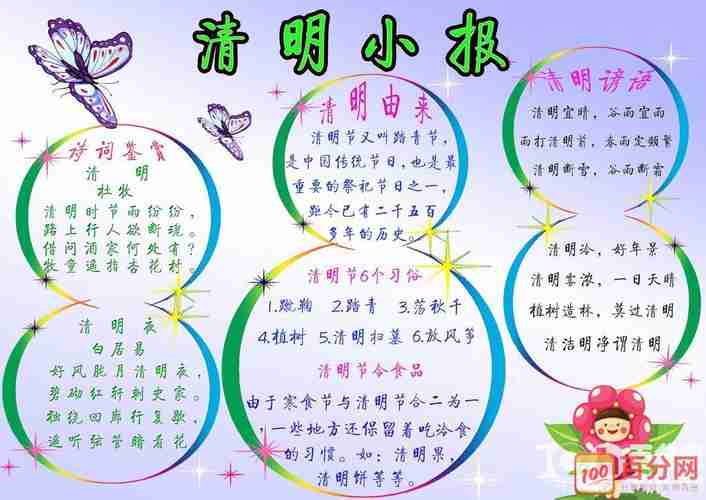 清明小报
诗词鉴赏
清 明
杜牧
清明时节雨纷纷，
路上行人欲断魂。
借问酒家何处有？
牧童遥指杏花村。
清 明 夜
白居易
好风胧月清明夜，
碧砌红轩刺史家。
独绕回廊行复歇，
遥听弦管暗看花
清明由来
清明节又叫踏青节，
是中国传统节日，也是最
重要的祭祀节日之一，
距今已有二千五百
多年的历史。
清明节6个习俗
1.蹴鞠 2.踏青 3.荡秋千
4.植树 5.清明扫墓 6.放风筝
清明节令食品
由于寒食节与清明节合二为一
，一些地方还保留着吃冷食
的习惯。如：清明果，
清明饼等等。
清明谚语
清明宜晴，谷雨宜雨
雨打清明前，春雨定频繁
清明断雪，谷雨断霜
清明冷，好年景
清明雾浓，一日天晴
植树造林，莫过清明
清洁明净谓清明
100
百分网